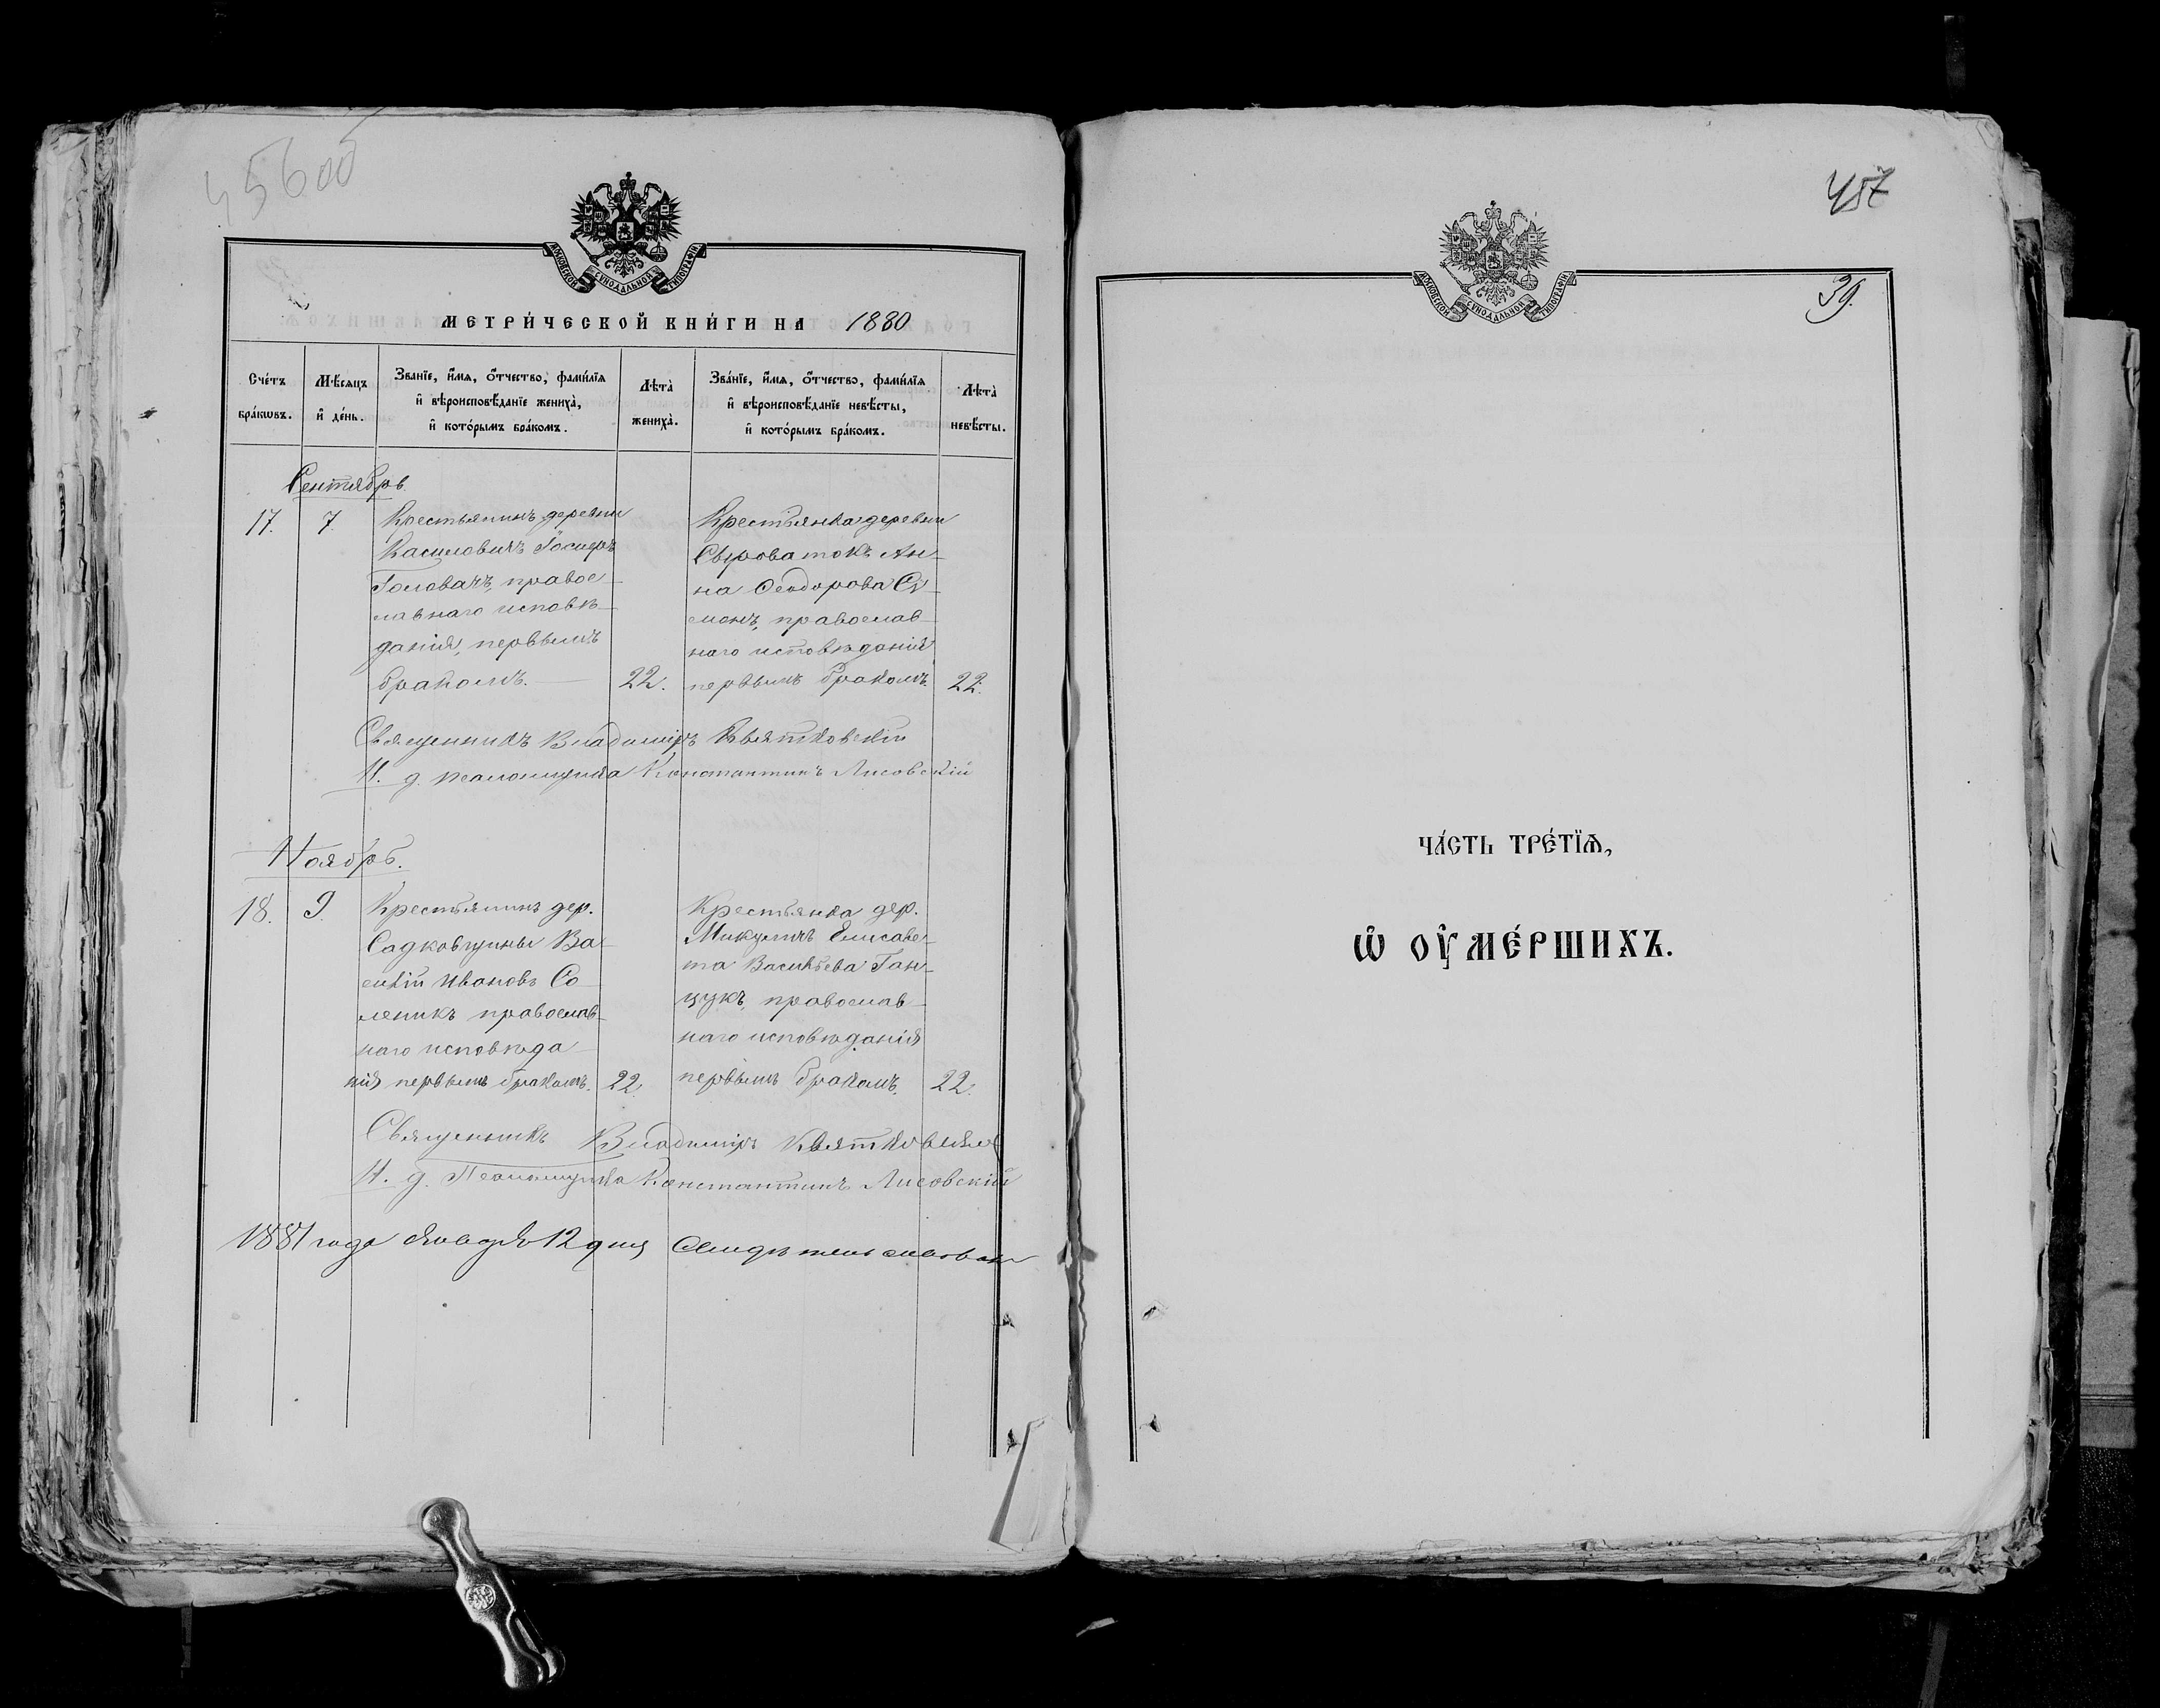 45600
МОСКОВСКОЙ СУНОДАЛЬНОЙ ТИПОГРАФІИ
МЕТРИ́ЧЕСКОЙ КНИ́ГИ НА 1880
Сче́тъ бра́кѡвъ.
Мѣ́сяцъ и҆ де́нь.
Зва́нїе, и҆́мѧ, ѻ҆́тчество, фами́лїѧ
и҆ вѣроисповѣ́данїе жениха̀,
и҆ кото́рымъ бра́комъ.
Лѣта̀ жениха̀.
Зва́нїе, и҆́мѧ, ѻ҆́тчество, фами́лїѧ
и҆ вѣроисповѣ́данїе невѣ́сты,
и҆ кото́рымъ бра́комъ.
Лѣта̀ невѣ́сты.
Сентябрь.
17. 7.
Крестьянинъ деревни
Головачъ, правос-
лавнаго исповѣ-
данія, первымъ
бракомъ. 22.
Крестьянка деревни
Сыроватокъ Ан-
на Ѳеодорова Си-
монъ, православ-
наго исповѣданія
первымъ бракомъ. 22.
Священникъ Владиміръ Квятковскій
И. д. псаломщика Константинъ Лисовскій
Ноябрь.
18. 9.
Крестьянинъ дер.
Садковщины Ва-
силій Ивановъ Со-
леникъ православ-
наго исповѣда-
нія первымъ бракомъ. 22.
Крестьянка дер.
Микуличъ Елисаве-
та Васильева Ган-
цукъ, православ-
наго исповѣданія
первымъ бракомъ. 22.
Священникъ Владиміръ Квятковскій
И. д. Псаломщика Константинъ Лисовскій
1881 года января 12 дня свидѣтельствовалъ
457
МОСКОВСКОЙ СУНОДАЛЬНОЙ ТИПОГРАФІИ
39.
ЧА́СТЬ ТРЕ́ТЇѦ,
Ѡ҆ ОУ҆МЕ́РШИХЪ.